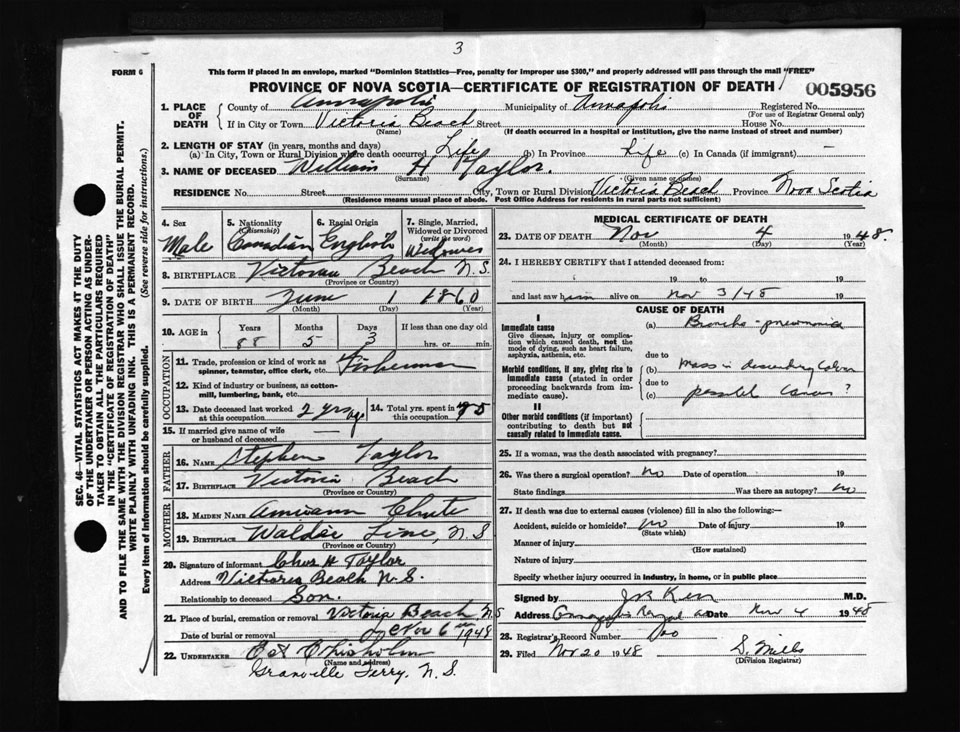 3
FORM 6
This form if placed in an envelope, marked "Dominion Statistics—Free, penalty for improper use $300," and properly addressed will pass through the mail "FREE"
PROVINCE OF NOVA SCOTIA—CERTIFICATE OF REGISTRATION OF DEATH
005956
1. PLACE OF DEATH
County of Annapolis Municipality of Annapolis Registered No.
(For use of Registrar General only)
If in City or Town Victoria Beach Street House No.
(Name) (If death occurred in a hospital or institution, give the name instead of street and number)
2. LENGTH OF STAY (in years, months and days)
(a) In City, Town or Rural Division where death occurred Life (b) In Province Life (c) In Canada (if immigrant) —
3. NAME OF DECEASED William H Taylor.
(Surname) (Given name or names)
RESIDENCE No. Street City, Town or Rural Division Victoria Beach Province Nova Scotia
(Residence means usual place of abode. Post Office Address for residents in rural parts not sufficient)
4. Sex Male
5. Nationality (Citizenship) Canadian
6. Racial Origin English
7. Single, Married, Widowed or Divorced (write the word) Widower
8. BIRTHPLACE Victoria Beach N.S.
(Province or Country)
9. DATE OF BIRTH June 1 1860
(Month) (Day) (Year)
10. AGE in Years Months Days If less than one day old
88 5 3 hrs. or min.
OCCUPATION
11. Trade, profession or kind of work as spinner, teamster, office clerk, etc. Fisherman
12. Kind of industry or business, as cotton-mill, lumbering, bank, etc.
13. Date deceased last worked at this occupation 2 yrs ago
14. Total yrs. spent in this occupation 75
15. If married give name of wife or husband of deceased —
FATHER
16. NAME Stephen Taylor
17. BIRTHPLACE Victoria Beach
(Province or Country)
MOTHER
18. MAIDEN NAME Chute
19. BIRTHPLACE Waldec Line, N.S
(Province or Country)
20. Signature of informant Chas H Taylor
Address Victoria Beach N.S.
Relationship to deceased Son.
21. Place of burial, cremation or removal Victoria Beach N S
Date of burial or removal Nov 6 1948
22. UNDERTAKER Chisholm
(Name and address)
Granville Ferry, N.S.
MEDICAL CERTIFICATE OF DEATH
23. DATE OF DEATH Nov 4 1948.
(Month) (Day) (Year)
24. I HEREBY CERTIFY that I attended deceased from:
19 to 19
and last saw him alive on Nov 3/48 19
CAUSE OF DEATH
I
Immediate cause
Give disease, injury or complication which caused death, not the mode of dying, such as heart failure, asphyxia, asthenia, etc.
(a) Broncho-pneumonia
due to
Morbid conditions, if any, giving rise to immediate cause (stated in order proceeding backwards from immediate cause).
(b) Mass in descending colon
due to
(c) possible cancer?
II
Other morbid conditions (if important) contributing to death but not causally related to immediate cause.
25. If a woman, was the death associated with pregnancy?
26. Was there a surgical operation? no Date of operation 19
State findings Was there an autopsy? no
27. If death was due to external causes (violence) fill in also the following:—
Accident, suicide or homicide? no Date of injury 19
(State which)
Manner of injury
(How sustained)
Nature of injury
Specify whether injury occurred in industry, in home, or in public place
Signed by Kerr M.D.
Address Annapolis Royal Date Nov 4 1948
28. Registrar's Record Number
29. Filed Nov 20 1948 S. Mills
(Division Registrar)
SEC. 46—VITAL STATISTICS ACT MAKES IT THE DUTY
OF THE UNDERTAKER OR PERSON ACTING AS UNDER-
TAKER TO OBTAIN ALL THE PARTICULARS REQUIRED
IN THE "CERTIFICATE OF REGISTRATION OF DEATH"
AND TO FILE THE SAME WITH THE DIVISION REGISTRAR WHO SHALL ISSUE THE BURIAL PERMIT.
WRITE PLAINLY WITH UNFADING INK. THIS IS A PERMANENT RECORD.
Every item of information should be carefully supplied. (See reverse side for instructions.)